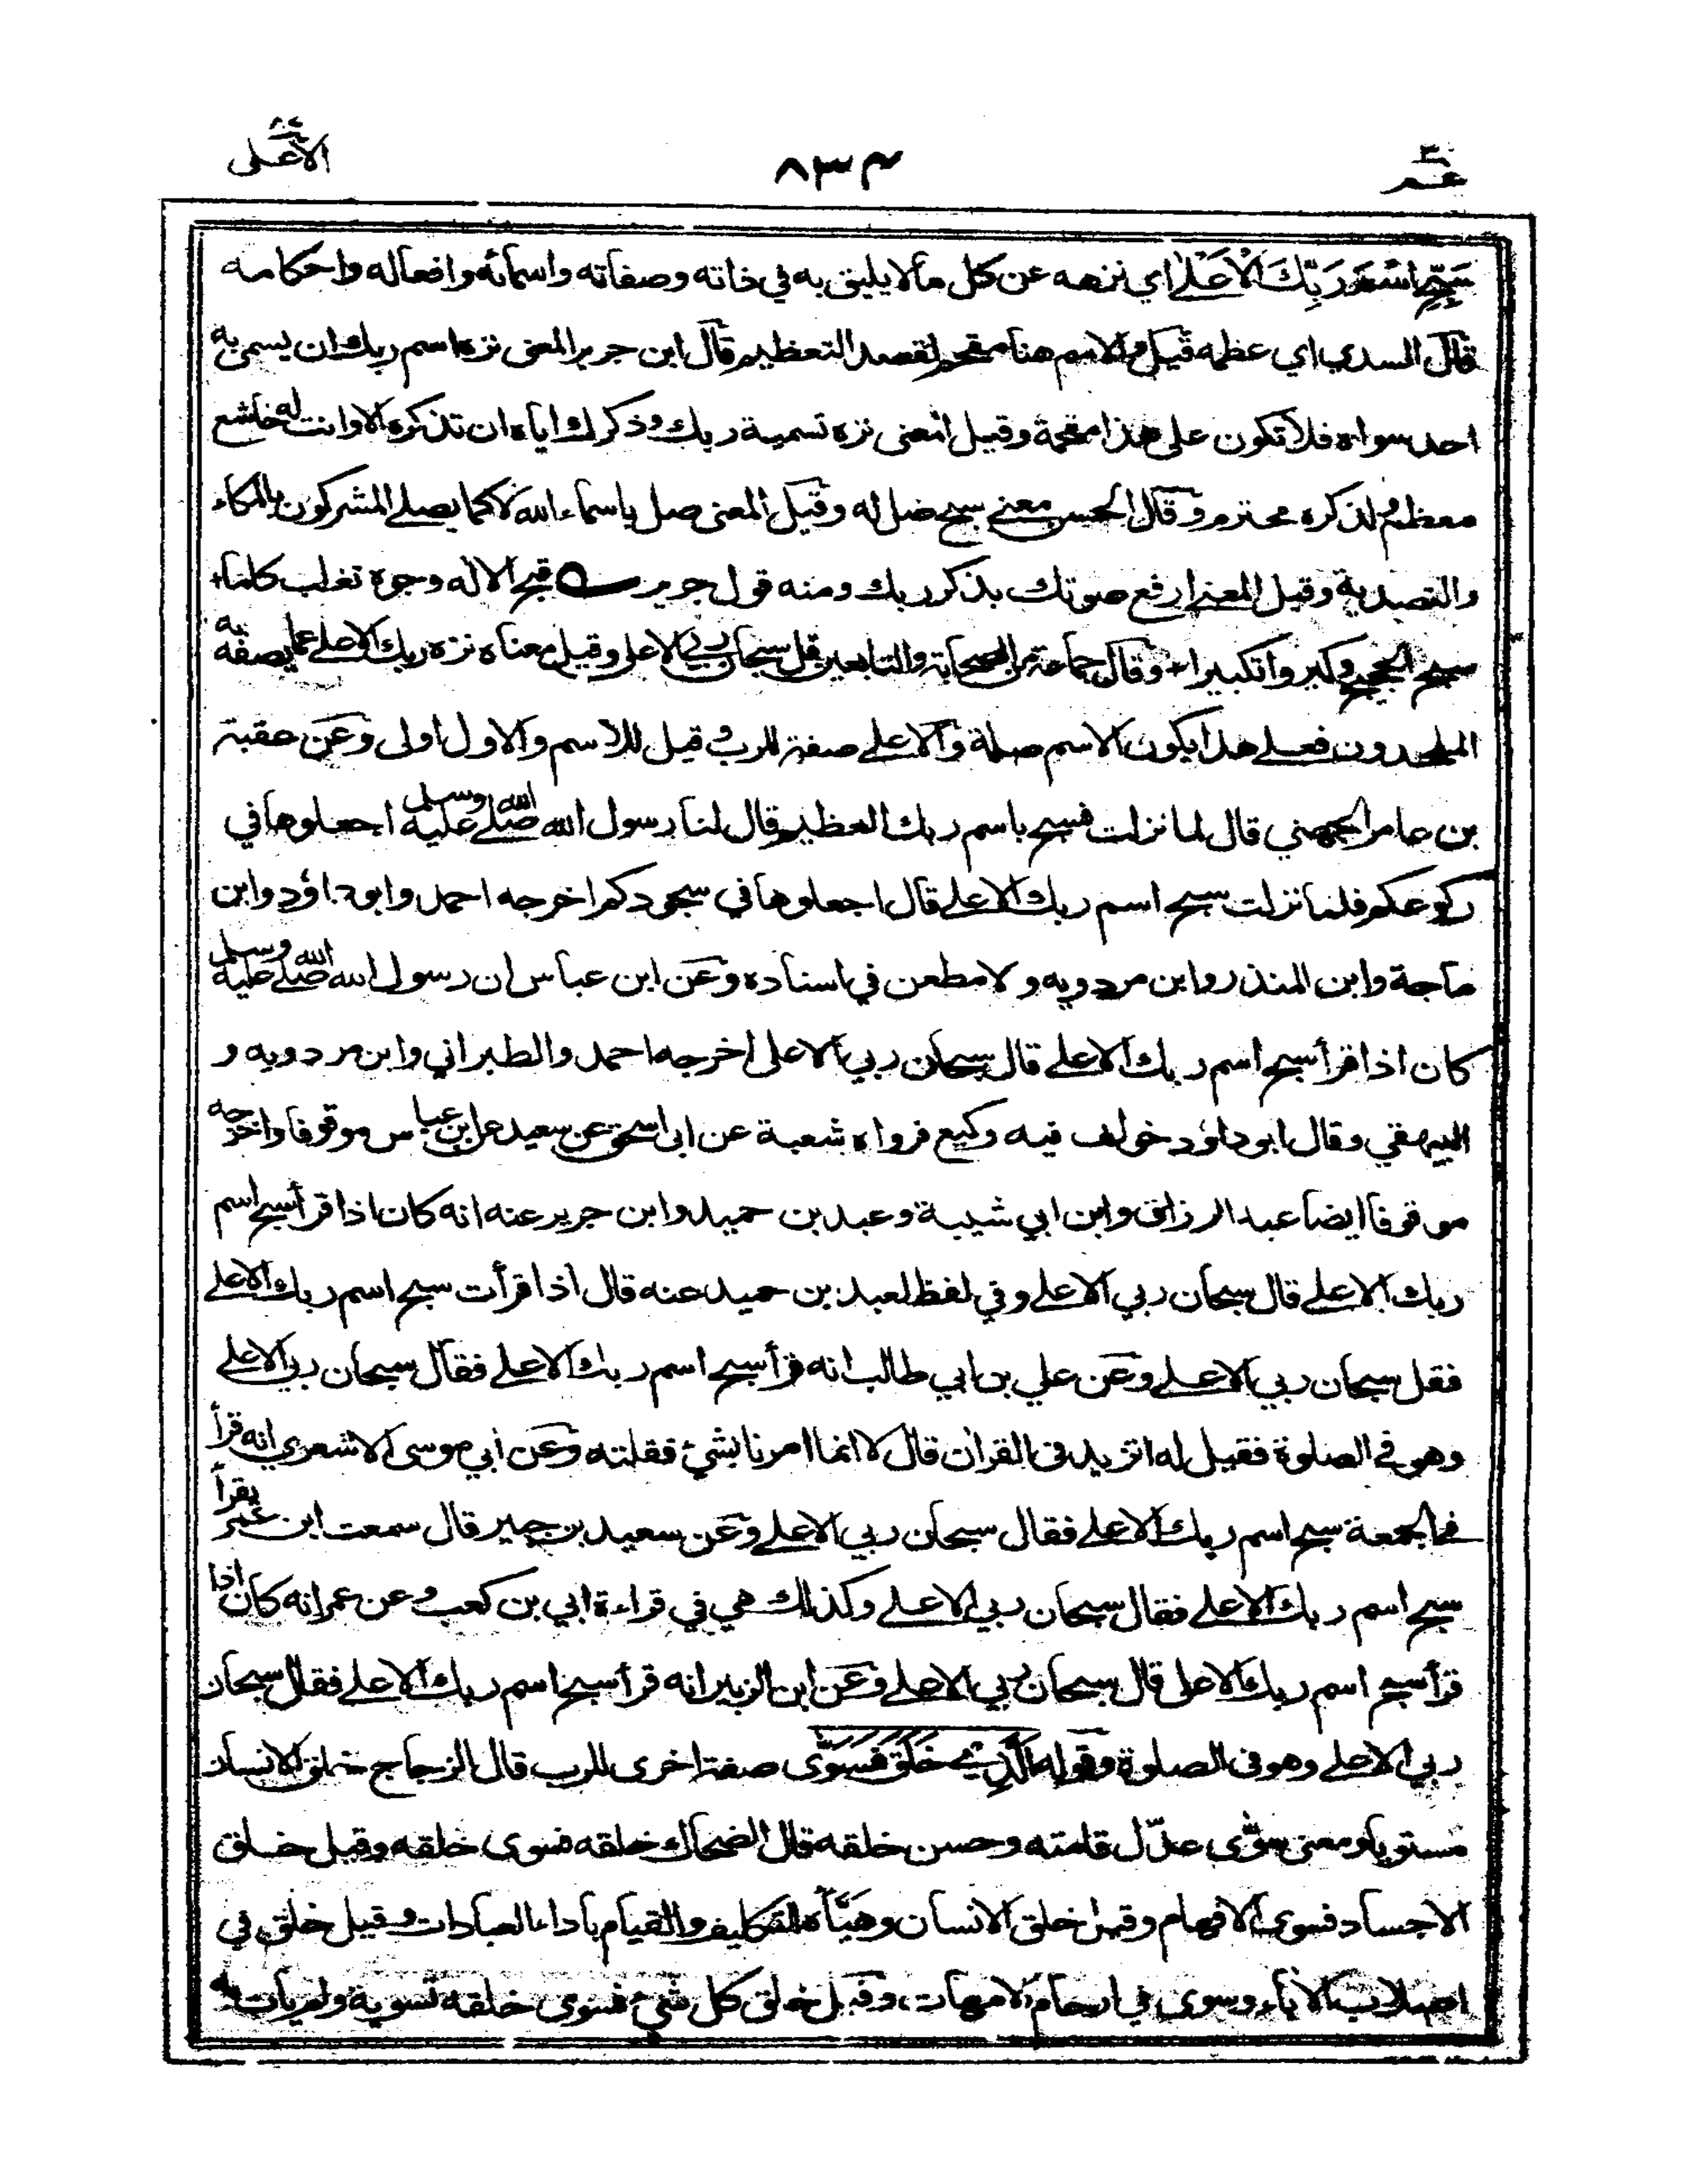 عم ٣٠
٨٣٤
الأعلى ٨٧
سَبِّحِ اسْمَ رَبِّكَ الْأَعْلَى اي نزهه عن كل مالا يليق به في ذاته وصفاته واسمائه وافعاله واحكامه
قال السدي اي عظمه قيل والاسم هنا مقحم لقصد التعظيم قال ابن جرير المعنى نزه اسم ربك ان يسمى به
احد سواه فلا تكون على هذا مقحمة وقيل المعنى نزه تسمية ربك وذكرك اياه ان تذكره الا وانت له خاشع
معظم ولذكره محترم وقال الحسن معنى سبح صل له وقيل المعنى صل باسماء الله لا كما يصلي المشركون بالمكاء
والتصدية وقيل المعنى ارفع صوتك بذكر ربك ومنه قول جرير قبح الاله وجوه تغلب كلما
سبح الحجيج وكبروا تكبيرا وقال جماعة من الصحابة والتابعين قل سبحان ربي الاعلى وقيل معناه نزه ربك الاعلى عما يصفه به
الملحدون فعلى هذا يكون الاسم صلة والاعلى صفة للرب وقيل للاسم والاول اولى وعن عقبة
بن عامر الجهني قال لما نزلت فسبح باسم ربك العظيم قال لنا رسول الله صلى الله عليه وسلم اجعلوها في
ركوعكم فلما نزلت سبح اسم ربك الاعلى قال اجعلوها في سجودكم اخرجه احمد وابو داؤد وابن
ماجة وابن المنذر وابن مردويه ولا مطعن في اسناده وعن ابن عباس ان رسول الله صلى الله عليه وسلم
كان اذا قرأ سبح اسم ربك الاعلى قال سبحان ربي الاعلى اخرجه احمد والطبراني وابن مردويه و
البيهقي وقال ابو داؤد خولف فيه وكيع فرواه شعبة عن ابى اسحق عن سعيد عن ابن عباس موقوفا واخرجه
موقوفا ايضا عبد الرزاق وابن ابي شيبة وعبد بن حميد وابن جرير عنه انه كان اذا قرأ سبح اسم
ربك الاعلى قال سبحان ربي الاعلى وفي لفظ لعبد بن حميد عنه قال اذا قرأت سبح اسم ربك الاعلى
فقل سبحان ربي الاعلى وعن علي بن ابي طالب انه قرأ سبح اسم ربك الاعلى فقال سبحان ربي الاعلى
وهو في الصلوة فقيل له اتزيد فى القران قال لا انما امرنا بشئ فقلته وعن أبي موسى الاشعري انه قرأ
في الجمعة سبح اسم ربك الاعلى فقال سبحان ربي الاعلى وعن سعيد بن جبير قال سمعت ابن عمر يقرأ
سبح اسم ربك الاعلى فقال سبحان ربي الاعلى وكذلك هي في قراءة ابي بن كعب وعن عمر انه كان اذا
قرأ سبح اسم ربك الاعلى قال سبحان ربي الاعلى وعن ابن الزبير انه قرأ سبح اسم ربك الاعلى فقال سبحان
ربي الاعلى وهو فى الصلوة وقوله الَّذِي خَلَقَ فَسَوَّى صفة اخرى للرب قال الزجاج خلق الانسان
مستويا ومعنى سوّى عدّل قامته وحسن خلقه قال الضحاك خلقه فسوى خلقه وقيل خلق
الاجساد فسوى الافهام وقيل خلق الانسان وهيّأه للتكليف والقيام باداء العبادات وقيل خلق في
اصلاب الآباء وسوى في ارحام الامهات وقيل خلق كل شئ فسوى خلقه تسوية ولم يأت به